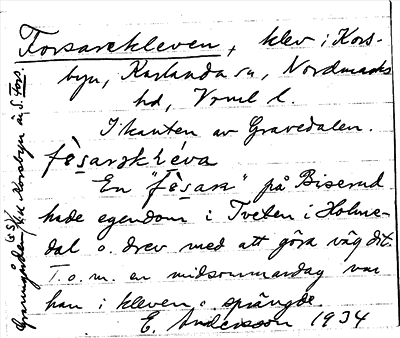 Forsarekleven, klev i Kors-
byn, Karlanda sn, Nordmarks
hd, Vrml l.
I kanten av Gravedalen.
fèsarskléva
En "fèsare" på Biserud
hade egendom i Tveten i Holme-
dal o. drev med att göra väg dit.
T.o.m. en midsommardag var
han i kleven o. sprängde.
E. Andersson 1934
Korsbyn åt S. Fors.